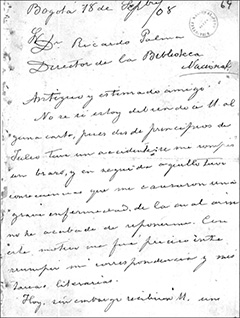 64
Bogotá 18 de Septbre/08
Sr. Dr. Ricardo Palma
Director de la Biblioteca
Nacional
Antiguo y estimado amigo:
No sé si estoy debiendo á U. al
guna carta, pues desde principios de
Julio tuve un accidente: me rompí
un brazo, y en seguida aquello tuvo
consecuencias que me causaron una
grave enfermedad, de la cual aun
no he acabado de reponerme. Con
este motivo me fué preciso inte
rrumpir mi correspondencia y mis
tareas literarias.
Hoy, sin embargo recibirá U. una